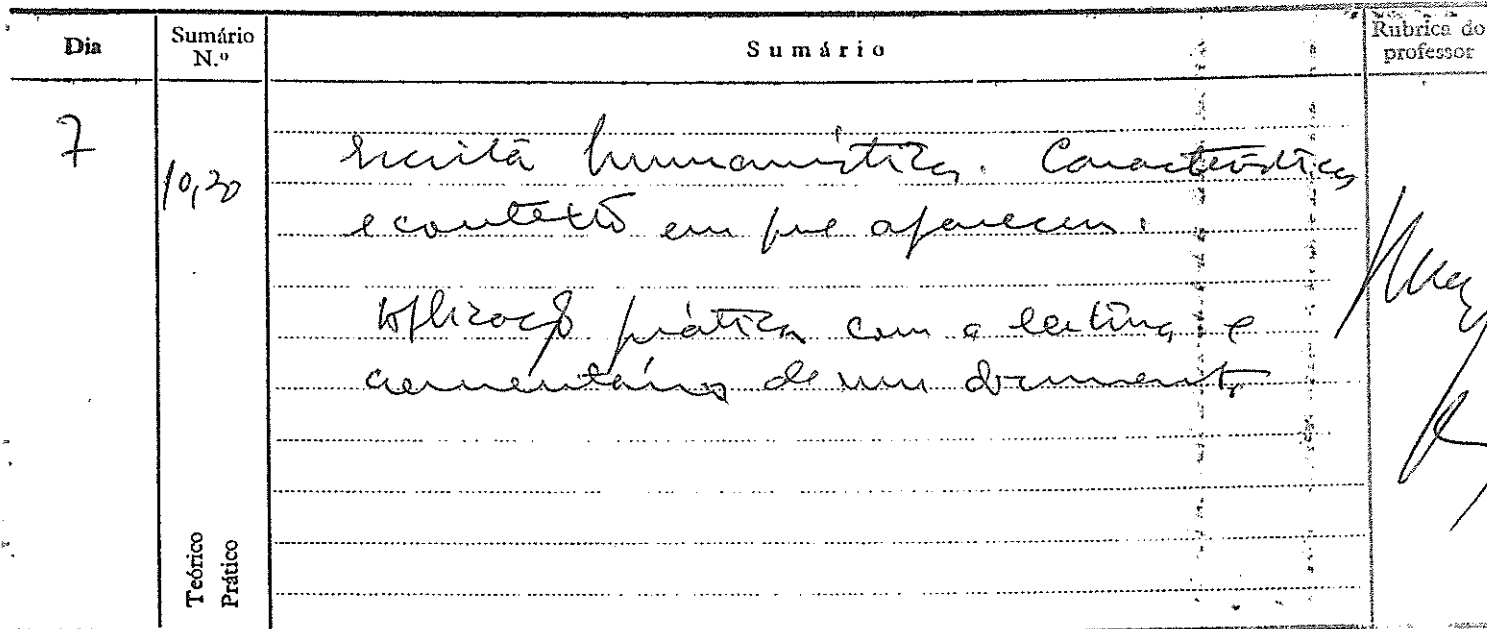 Dia
Sumário N.º
Sumário
Rubrica do professor
7
10,30
Escrita humanística. Características
e contexto em que aparecem.
Aplicação prática com a leitura e
comentário de um documento
Teórico
Prático